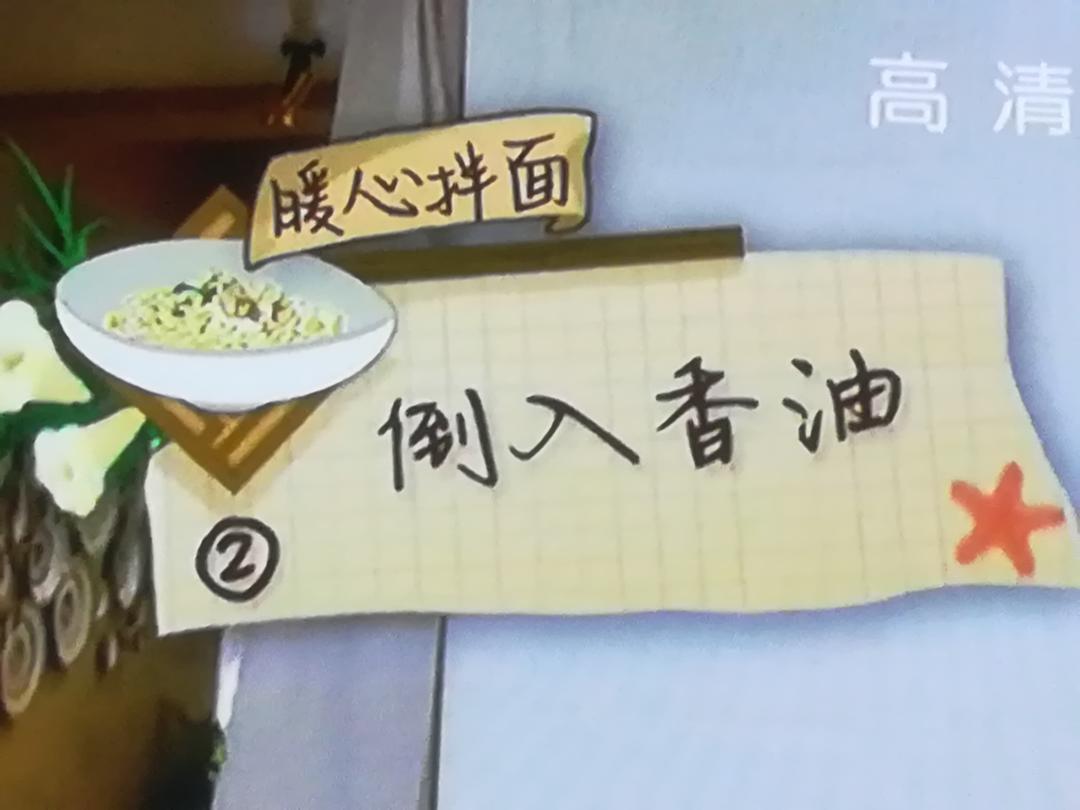 高清
暖心拌面
倒入香油
②